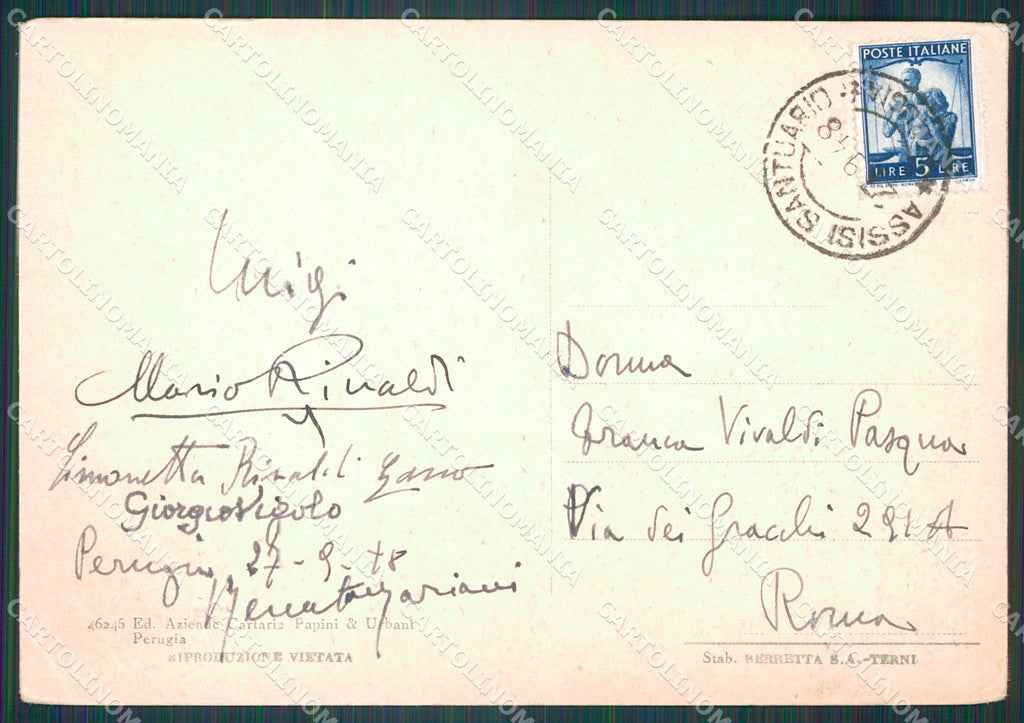 POSTE ITALIANE
LIRE 5 LIRE
ASSISI SANTUARIO
Luigi
Mario Rinaldi
Simonetta Rinaldi
Giorgio Vigolo
Perugia 27-9-48
Renato Mariani
46245 Ed. Aziende Cartarie Papini & Urbani
Perugia
RIPRODUZIONE VIETATA
Donna
Franca Vivaldi Pasqua
Via dei Gracchi 291 A
Roma
Stab. BERRETTA S.A.-TERNI
CARTOLINOMANIA